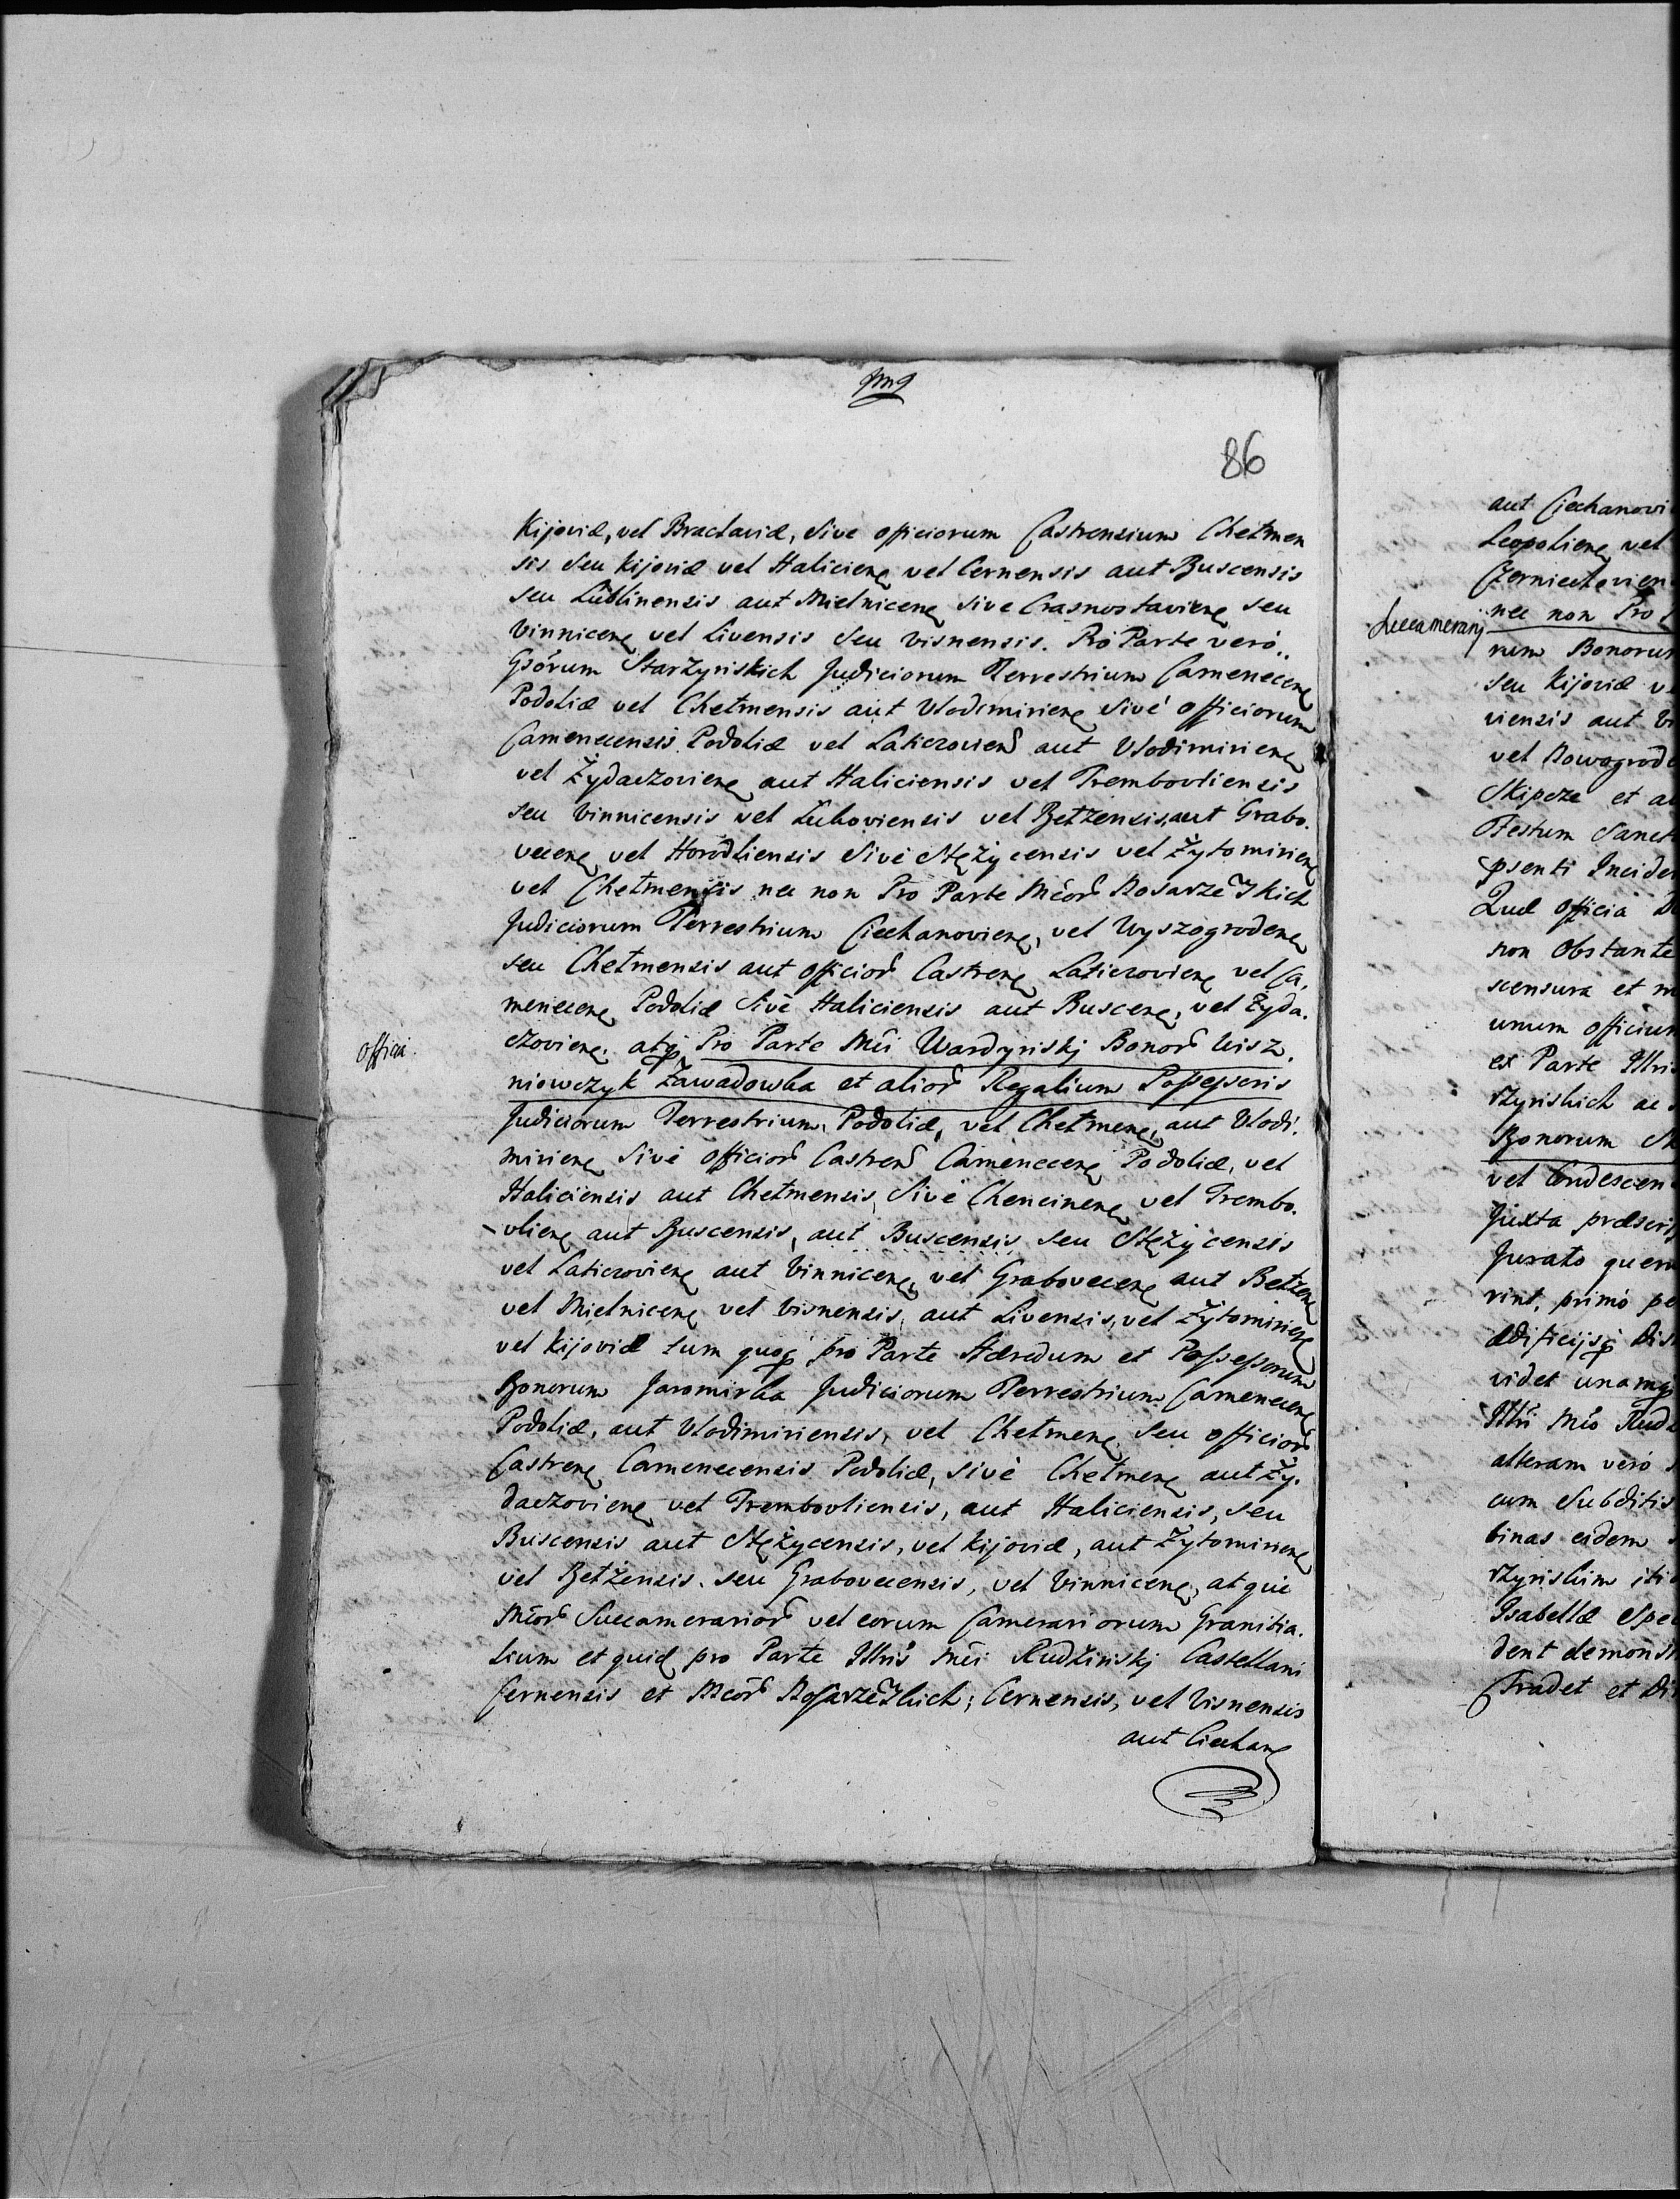 86
Kijoviæ, vel Braclaviæ, sive officiorum Castrensium Chełmen
sis seu Kijoviæ vel Haliciens vel Cernensis aut Buscensis
seu Lublinensis aut Mielnicens sive Crasnostaviens seu
Vinnicens vel Livensis seu Visnensis. Pro Parte verò
Gsorum Starzynskich Judiciorum Terrestrium Camenecens
Podoliæ vel Chełmensis aut Vlodimiriens sivè officiorum
Camenecensis Podoliæ vel Laticzoviens aut Vlodimiriens
vel Żydaczoviens aut Haliciensis vel Trembovliensis
seu Vinnicensis vel Lukoviensis vel Bełzensis, aut Grabo.
vecens vel Horodliensis sivè Stężycensis vel Żytomiriens
vel Chełmensis nec non Pro Parte Mcor
Judiciorum Terrestrium Ciechanoviens, vel Wyszogrodens
seu Chełmensis aut officior Castrens Laticzoviens vel Ca.
menecens Podoliæ sivè Haliciensis aut Buscens, vel Żyda.
czoviens. atq Pro Parte Mci Wardynskj Bonor Wisz.
offici.
niowczyk Zawadowka et alior Regalium Possessoris
Judiciorum Terrestrium Podoliæ, vel Chełmens, aut Vlodi.
miriens sivè officior Castrens Camenecens Podoliæ, vel
Haliciensis aut Chełmensis, sivè Chencinens vel Trembo.
vliens aut Buscensis, aut Buscensis seu Stężycensis
vel Laticzoviens aut Vinnicens, vel Grabovecens aut Bełzens
vel Mielnicens vel Visnensis, aut Livensis, vel Żytomiriens
vel Kijoviæ tum quoq pro Parte Hæredum et Possessorum
Bonorum Jaromirka Judiciorum Terrestrium Camenecens
Podoliæ, aut Vlodimiriensis, vel Chełmens seu officior
Castrens Camenecensis Podoliæ, sivè Chełmens aut Ży.
daczoviens vel Trembovliensis, aut Haliciensis, seu
Buscensis aut Stężycensis, vel Kijoviæ, aut Żytomiriens
vel Bełzensis. seu Grabovecensis, vel Vinnicens, atque
Mcor Succamerarior vel eorum Camerariorum Granitia.
lium et quid pro Parte Illris Mci Rudzinskj Castellani
Cernensis et Mcor Cernensis, vel Visnensis
aut Ciechan
aut Ciechanovi
Leopoliens vel
Czerniechovien
nec non Pro
Succamerarij
rum Bonorum
seu Kijoviæ v
viensis aut
vel Nowogrod
Skipcze et al
Festum Sanct
psenti Inciden
Quæ officia
non obstante
scensura et
unum officium
ex Parte Illris
rzynskich ac
Bonorum
vel Condescen
Juxta præscrip
Jurato quem
rint, primò pe
ædificijsq dis
videt unamq
Illri Mco Rudz
alteram verò
cum Subditis
binas eidem
rzynskim iti
Isabellæ Spe
dent demonst
Tradet et di